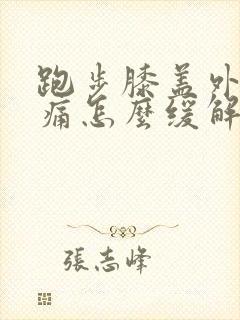 跑步膝盖外
痛怎麼缓解
張志峰